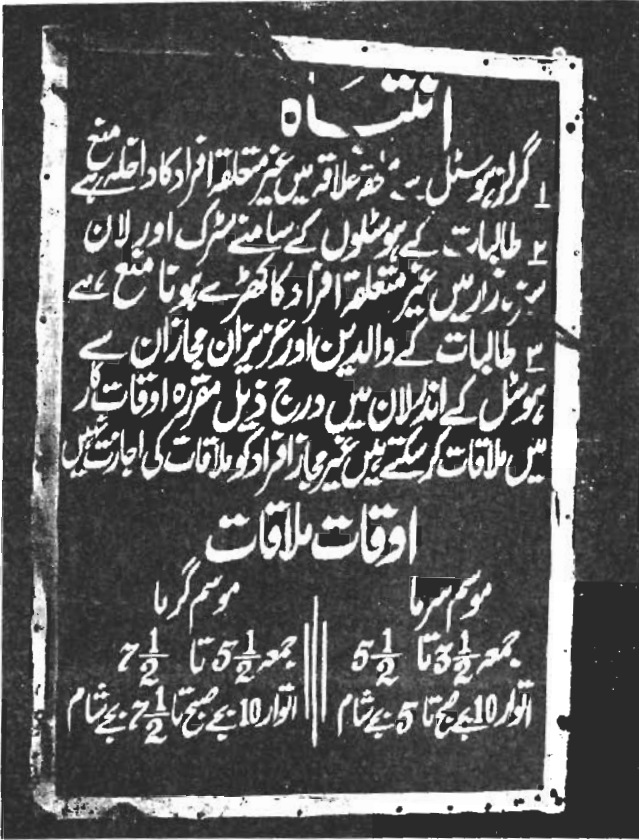 انتباہ
۱ گرلز ہوسٹل سے ملحقہ علاقہ میں غیر متعلقہ افراد کا داخلہ منع ہے
۲ طالبات کے ہوسٹلوں کے سامنے سڑک اور لان
سبزہ زار میں غیر متعلقہ افراد کا کھڑے ہونا منع ہے
۳ طالبات کے والدین اور عزیزان مجازان سے
ہوسٹل کے اندر لان میں درج ذیل مقررہ اوقات کار
میں ملاقات کر سکتے ہیں غیر مجاز افراد کو ملاقات کی اجازت نہیں
اوقات ملاقات
موسم سرما
جمعہ 3½ تا 5½
اتوار 10 بجے صبح تا 5 بجے شام
موسم گرما
جمعہ 5½ تا 7½
اتوار 10 بجے صبح تا 7½ بجے شام